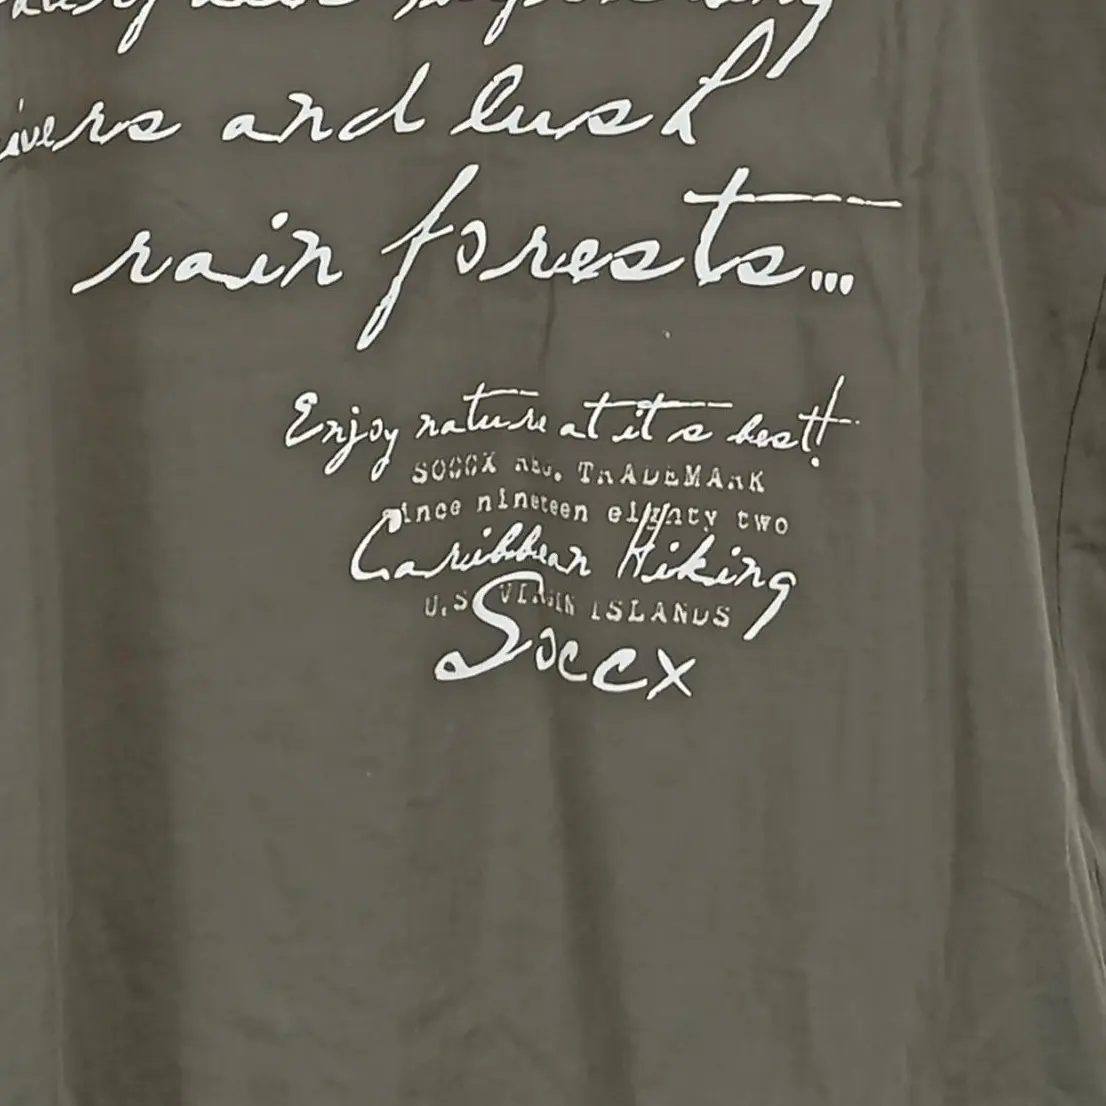 rivers and lush
rain forests...
Enjoy nature at it's best!
SOCCX REG. TRADEMARK
since nineteen eighty two
Caribbean Hiking
U.S VIRGIN ISLANDS
Soccx